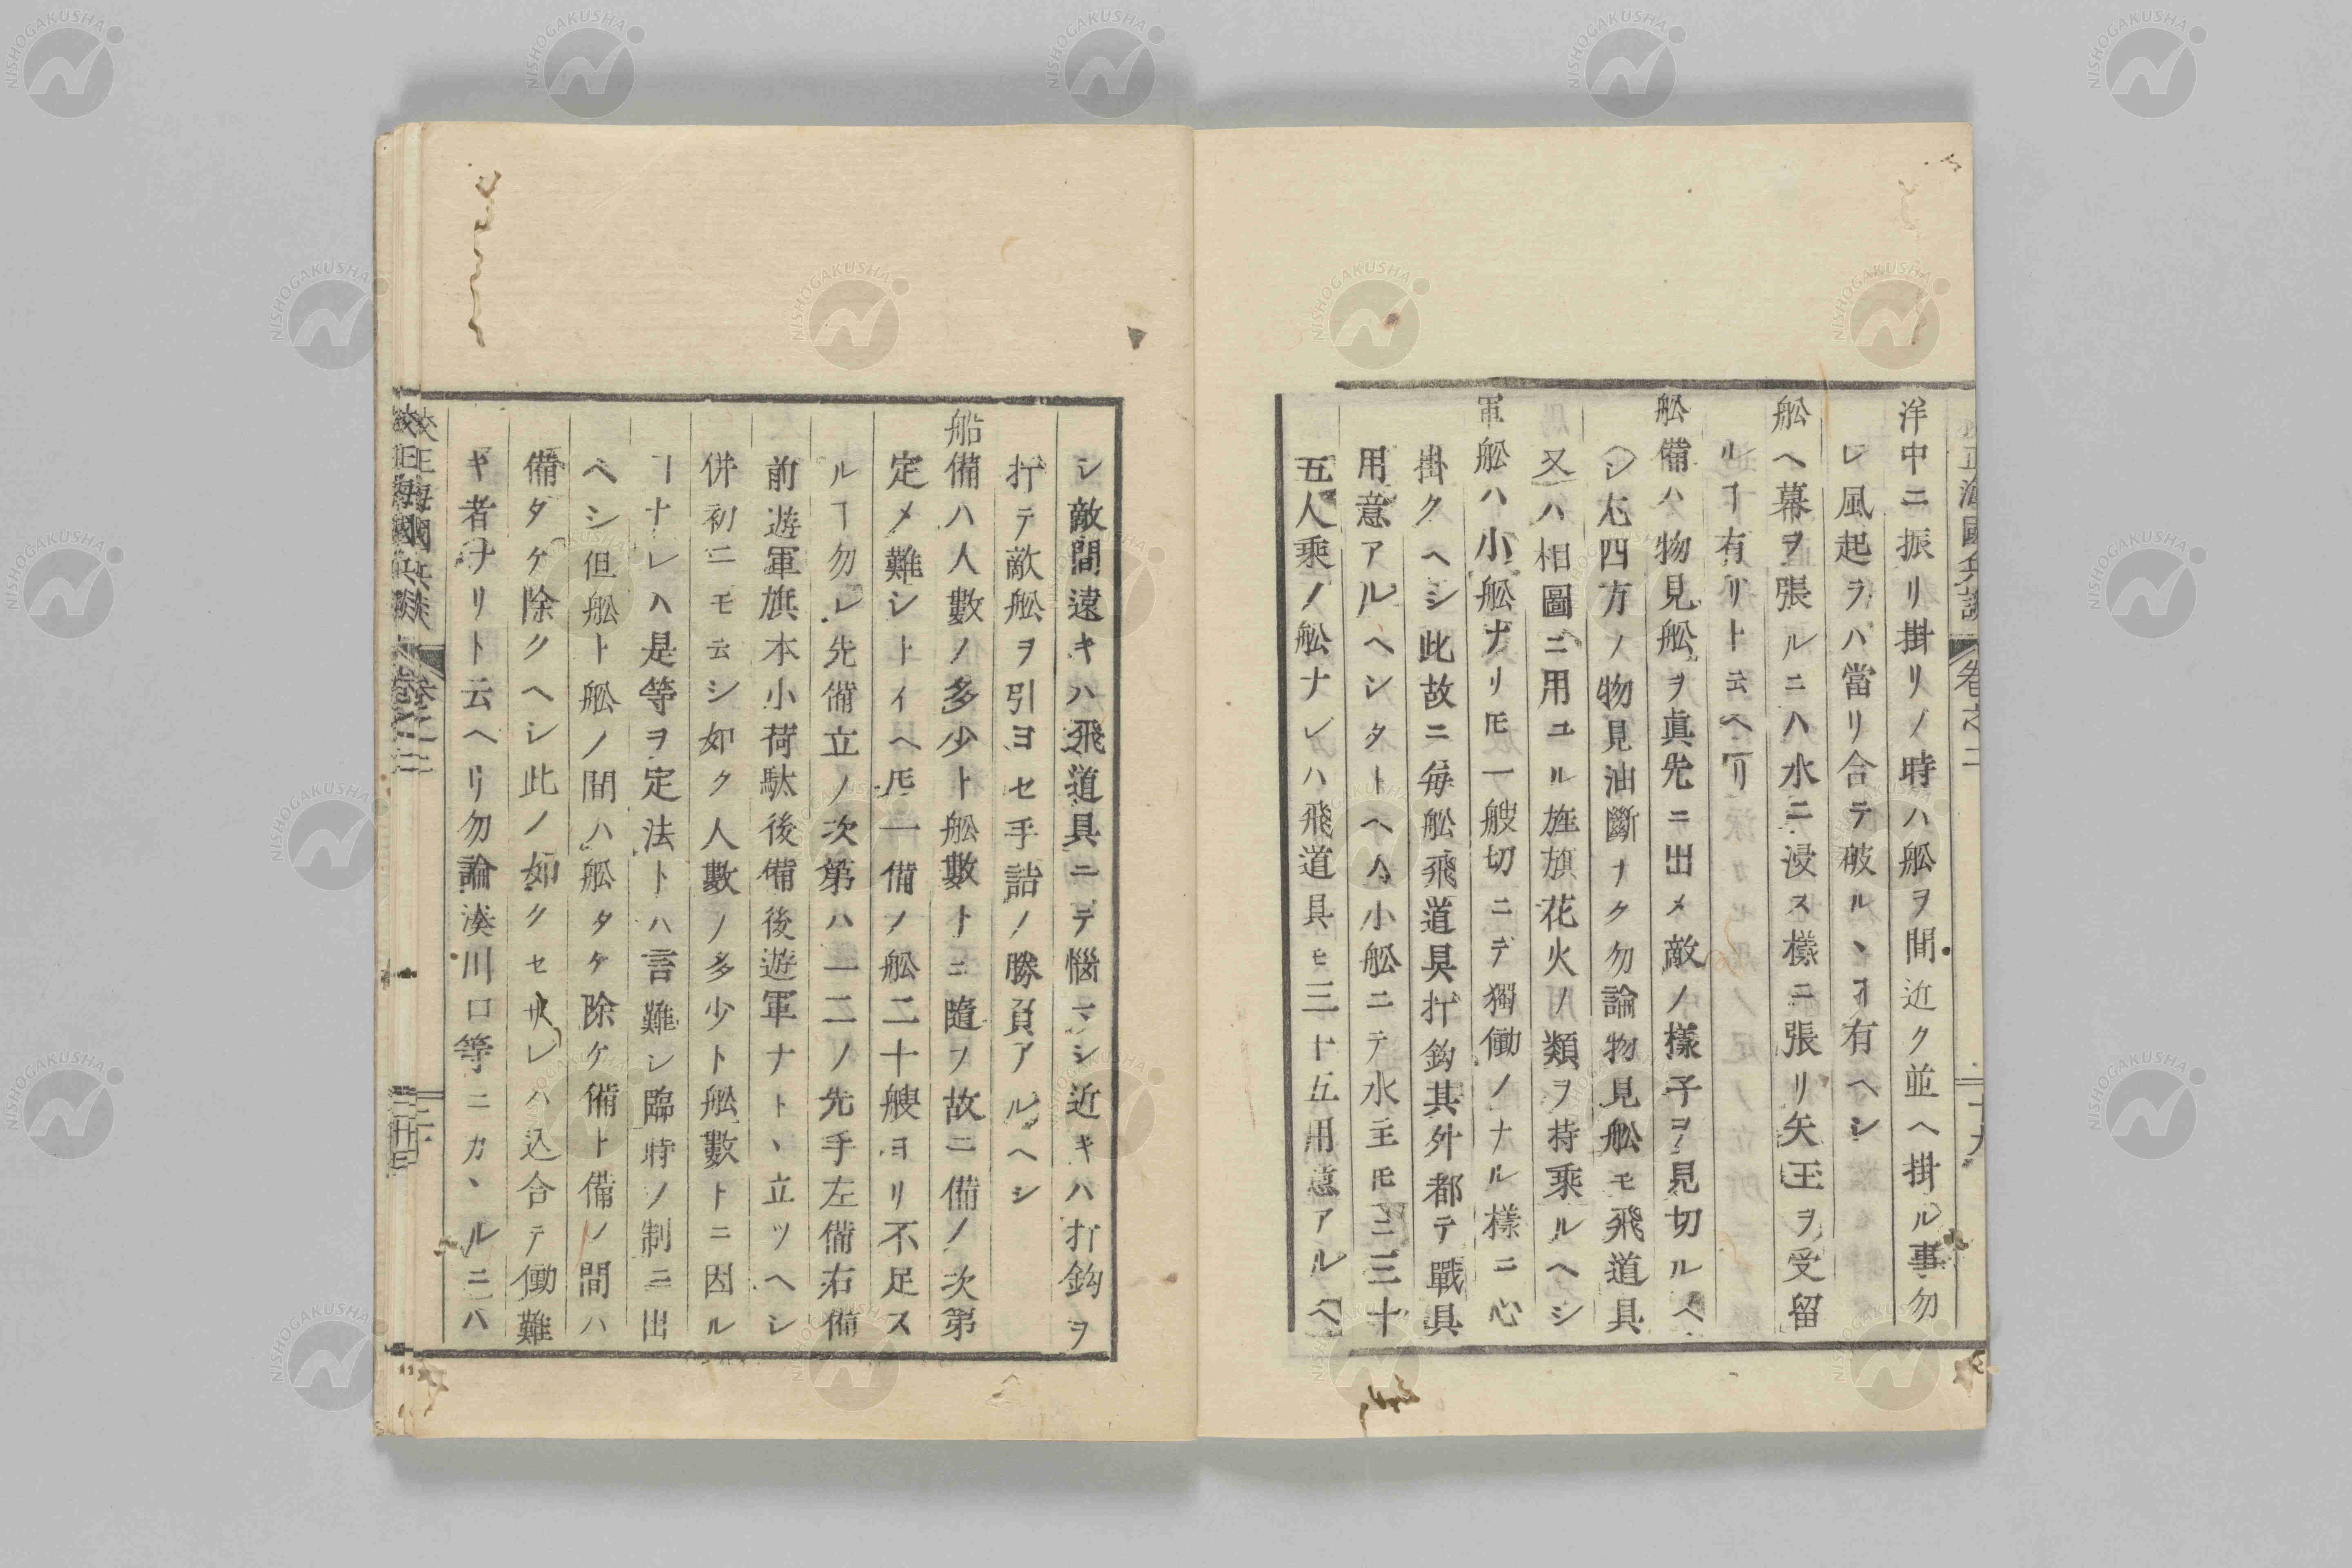 洋中ニ振リ掛リノ時ハ舩ヲ間近ク並ヘ掛ル事勿
レ風起ラハ當リ合テ破ルヽヿ有ヘシ
舩ヘ幕ヲ張ルニハ水ニ浸ス様ニ張リ矢玉ヲ受留
ルヿ有リト云ヘリ
舩備ハ物見舩ヲ眞先ニ出メ敵ノ様子ヲ見切ルヘ
シ尤四方ノ物見油斷ナク勿論物見舩モ飛道具
又ハ相圖ニ用ユル旌旗花火ノ類ヲ持乗ルヘシ
軍舩ハ小舩ナリ𪜈一艘切ニテ獨働ノナル様ニ心
掛クヘシ此故ニ毎舩飛道具打鈎其外都テ戰具
用意アルヘシタトヘハ小舩ニテ水主𪜈ニ三十
五人乗ノ舩ナレハ飛道具モ三十五用意アルヘ
シ敵間遠キハ飛道具ニテ惱マシ近キハ打鈎ヲ
打テ敵舩ヲ引ヨセ手詰ノ勝負アルヘシ
船備ハ人數ノ多少ト舩數トニ隨フ故ニ備ノ次第
定メ難シトイヘ𪜈一備ノ舩二十艘ヨリ不足ス
ルヿ勿レ先備立ノ次第ハ一二ノ先手左備右備
前遊軍旗本小荷駄後備後遊軍ナトヽ立ツヘシ
併初ニモ云シ如ク人數ノ多少ト舩數トニ因ル
ヿナレハ是等ヲ定法トハ言難シ臨時ノ制ニ出
ヘシ但舩ト舩ノ間ハ舩タケ除ケ備ト備ノ間ハ
備タケ除クヘシ此ノ如クセサレハ込合テ働難
キ者ナリト云ヘリ勿論湊川口等ニカヽルニハ
正海國兵談 卷之二 二十九
校正海國兵談 卷之二